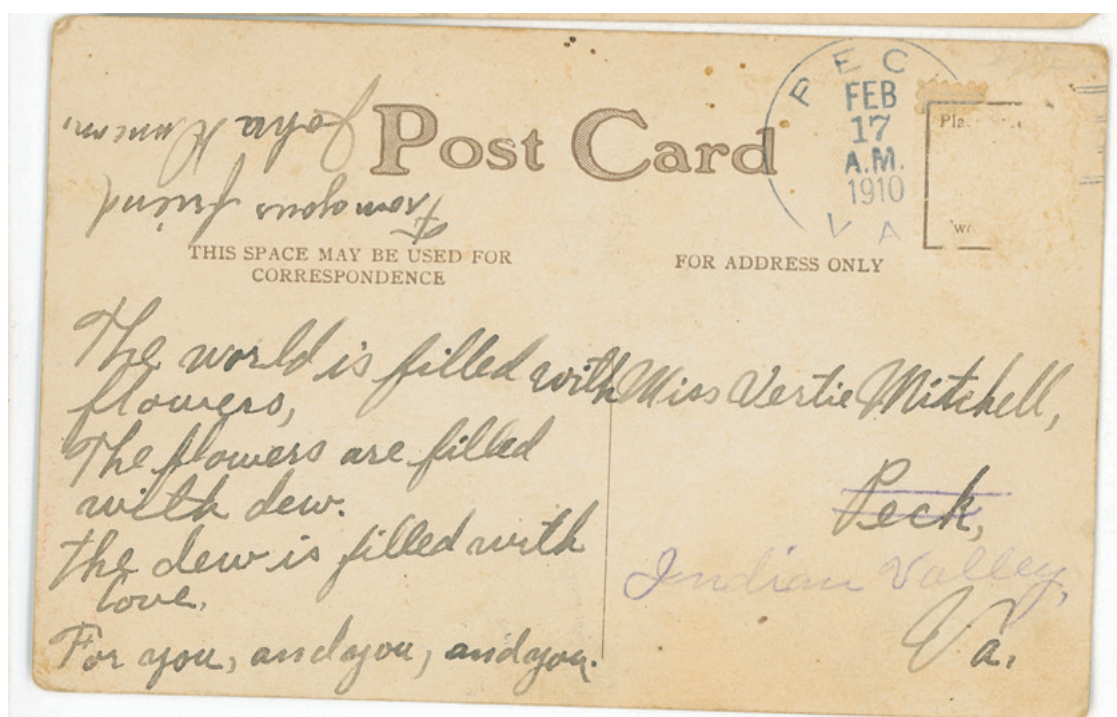 Post Card
PEC
FEB
17
A.M.
1910
VA
Pla
W
From your friend
John
THIS SPACE MAY BE USED FOR
CORRESPONDENCE
FOR ADDRESS ONLY
The world is filled with
flowers,
The flowers are filled
with dew.
the dew is filled with
love.
For you, and you, and you.
Miss Vertie Mitchell,
Peck,
Indian Valley,
Va.